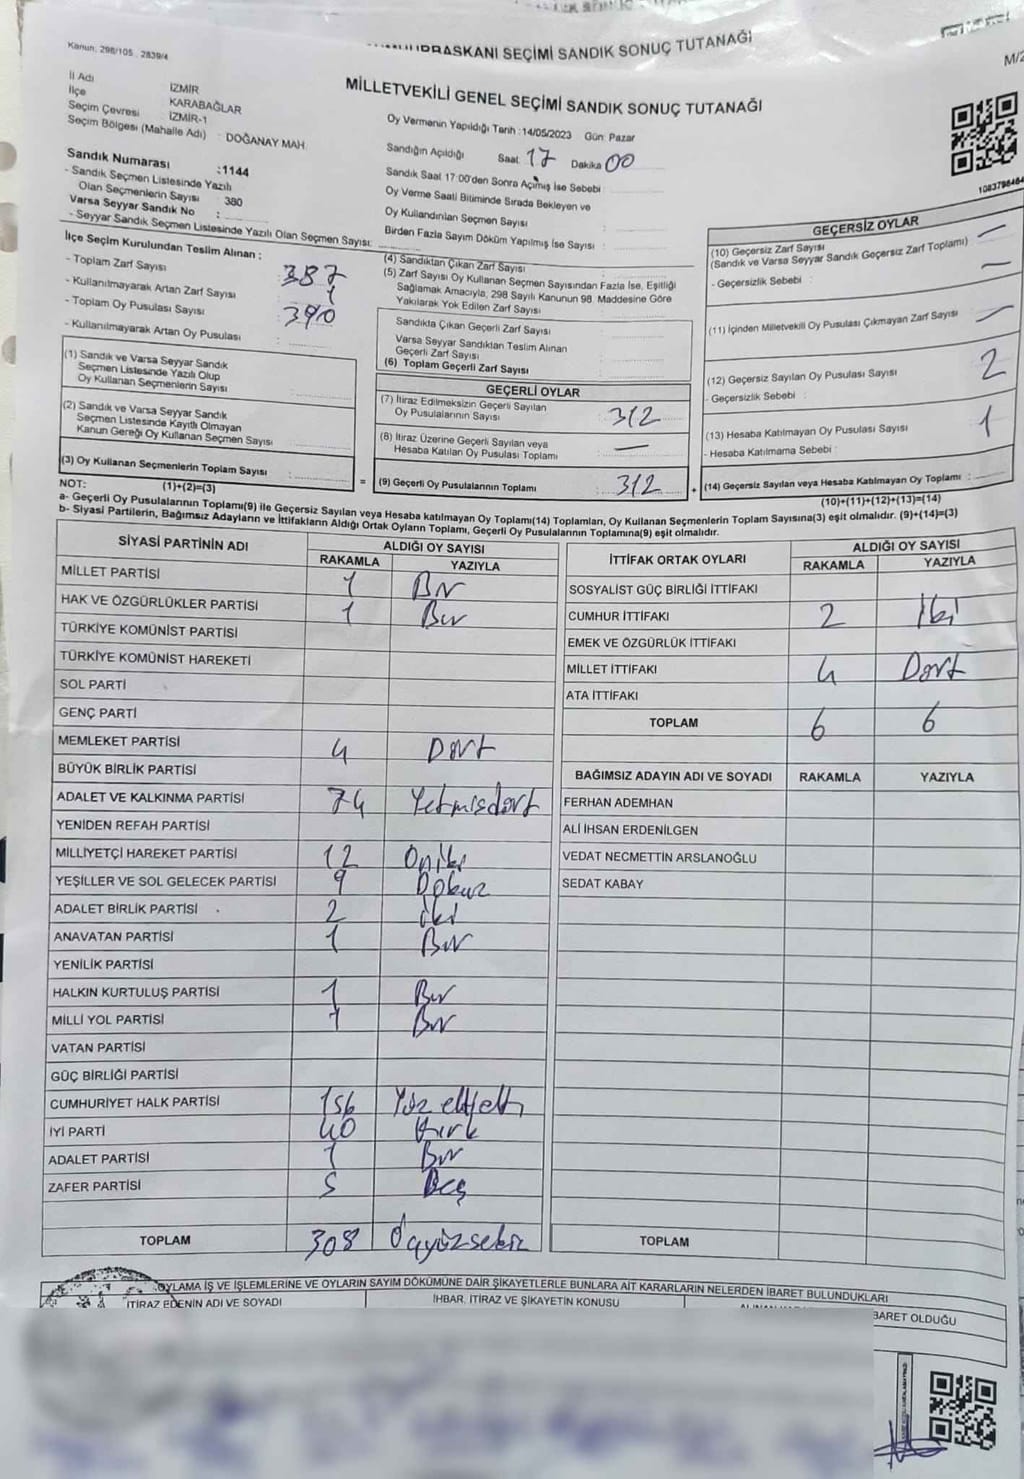 Kanun, 298/105 , 2839/4
BAŞKANI SEÇİMİ SANDIK SONUÇ TUTANAĞI
MİLLETVEKİLİ GENEL SEÇİMİ SANDIK SONUÇ TUTANAĞI
M/2
İl Adı İZMİR
İlçe KARABAĞLAR
Seçim Çevresi İZMİR-1
Seçim Bölgesi (Mahalle Adı) : DOĞANAY MAH.
Sandık Numarası :1144
- Sandık Seçmen Listesinde Yazılı
Olan Seçmenlerin Sayısı : 380
Varsa Seyyar Sandık No :
- Seyyar Sandık Seçmen Listesinde Yazılı Olan Seçmen Sayısı:
Oy Vermenin Yapıldığı Tarih :14/05/2023 Gün: Pazar
Sandığın Açıldığı Saat 17 Dakika 00
Sandık Saat 17:00'den Sonra Açılmış İse Sebebi :
Oy Verme Saati Bitiminde Sırada Bekleyen ve
Oy Kullandırılan Seçmen Sayısı :
Birden Fazla Sayım Döküm Yapılmış İse Sayısı :
1083798464
İlçe Seçim Kurulundan Teslim Alınan :
- Toplam Zarf Sayısı : 387
- Kullanılmayarak Artan Zarf Sayısı : 1
- Toplam Oy Pusulası Sayısı : 390
- Kullanılmayarak Artan Oy Pusulası :
(1) Sandık ve Varsa Seyyar Sandık
Seçmen Listesinde Yazılı Olup
Oy Kullanan Seçmenlerin Sayısı :
(2) Sandık ve Varsa Seyyar Sandık
Seçmen Listesinde Kayıtlı Olmayan
Kanun Gereği Oy Kullanan Seçmen Sayısı :
(3) Oy Kullanan Seçmenlerin Toplam Sayısı :
(1)+(2)=(3)
(4) Sandıktan Çıkan Zarf Sayısı :
(5) Zarf Sayısı Oy Kullanan Seçmen Sayısından Fazla İse, Eşitliği
Sağlamak Amacıyla, 298 Sayılı Kanunun 98. Maddesine Göre
Yakılarak Yok Edilen Zarf Sayısı :
Sandıkta Çıkan Geçerli Zarf Sayısı :
Varsa Seyyar Sandıktan Teslim Alınan
Geçerli Zarf Sayısı :
(6) Toplam Geçerli Zarf Sayısı :
GEÇERLİ OYLAR
(7) İtiraz Edilmeksizin Geçerli Sayılan
Oy Pusulalarının Sayısı : 312
(8) İtiraz Üzerine Geçerli Sayılan veya
Hesaba Katılan Oy Pusulası Toplamı : —
= (9) Geçerli Oy Pusulalarının Toplamı : 312 +
GEÇERSİZ OYLAR
(10) Geçersiz Zarf Sayısı : —
(Sandık ve Varsa Seyyar Sandık Geçersiz Zarf Toplamı)
- Geçersizlik Sebebi : —
(11) İçinden Milletvekili Oy Pusulası Çıkmayan Zarf Sayısı : —
(12) Geçersiz Sayılan Oy Pusulası Sayısı : 2
- Geçersizlik Sebebi :
(13) Hesaba Katılmayan Oy Pusulası Sayısı : 1
- Hesaba Katılmama Sebebi :
(14) Geçersiz Sayılan veya Hesaba Katılmayan Oy Toplamı :
(10)+(11)+(12)+(13)=(14)
NOT:
a- Geçerli Oy Pusulalarının Toplamı(9) ile Geçersiz Sayılan veya Hesaba katılmayan Oy Toplamı(14) Toplamları, Oy Kullanan Seçmenlerin Toplam Sayısına(3) eşit olmalıdır. (9)+(14)=(3)
b- Siyasi Partilerin, Bağımsız Adayların ve İttifakların Aldığı Ortak Oyların Toplamı, Geçerli Oy Pusulalarının Toplamına(9) eşit olmalıdır.
SİYASİ PARTİNİN ADI ALDIĞI OY SAYISI
RAKAMLA YAZIYLA
MİLLET PARTİSİ 1 Bir
HAK VE ÖZGÜRLÜKLER PARTİSİ 1 Bir
TÜRKİYE KOMÜNİST PARTİSİ
TÜRKİYE KOMÜNİST HAREKETİ
SOL PARTİ
GENÇ PARTİ
MEMLEKET PARTİSİ 4 Dört
BÜYÜK BİRLİK PARTİSİ
ADALET VE KALKINMA PARTİSİ 74 Yetmisdört
YENİDEN REFAH PARTİSİ
MİLLİYETÇİ HAREKET PARTİSİ 12 Oniki
YEŞİLLER VE SOL GELECEK PARTİSİ 9 Dokuz
ADALET BİRLİK PARTİSİ 2 iki
ANAVATAN PARTİSİ 1 Bir
YENİLİK PARTİSİ
HALKIN KURTULUŞ PARTİSİ 1 Bir
MİLLİ YOL PARTİSİ 1 Bir
VATAN PARTİSİ
GÜÇ BİRLİĞİ PARTİSİ
CUMHURİYET HALK PARTİSİ 156 Yüz ellialtı
İYİ PARTİ 40 Kırk
ADALET PARTİSİ 1 Bir
ZAFER PARTİSİ 5 Beş
TOPLAM 308 Üçyüzsekiz
İTTİFAK ORTAK OYLARI ALDIĞI OY SAYISI
RAKAMLA YAZIYLA
SOSYALİST GÜÇ BİRLİĞİ İTTİFAKI
CUMHUR İTTİFAKI 2 İki
EMEK VE ÖZGÜRLÜK İTTİFAKI
MİLLET İTTİFAKI 4 Dört
ATA İTTİFAKI
TOPLAM 6 6
BAĞIMSIZ ADAYIN ADI VE SOYADI RAKAMLA YAZIYLA
FERHAN ADEMHAN
ALİ İHSAN ERDENİLGEN
VEDAT NECMETTİN ARSLANOĞLU
SEDAT KABAY
TOPLAM
OYLAMA İŞ VE İŞLEMLERİNE VE OYLARIN SAYIM DÖKÜMÜNE DAİR ŞİKAYETLERLE BUNLARA AİT KARARLARIN NELERDEN İBARET BULUNDUKLARI
İTİRAZ EDENİN ADI VE SOYADI İHBAR, İTİRAZ VE ŞİKAYETİN KONUSU
BARET OLDUĞU